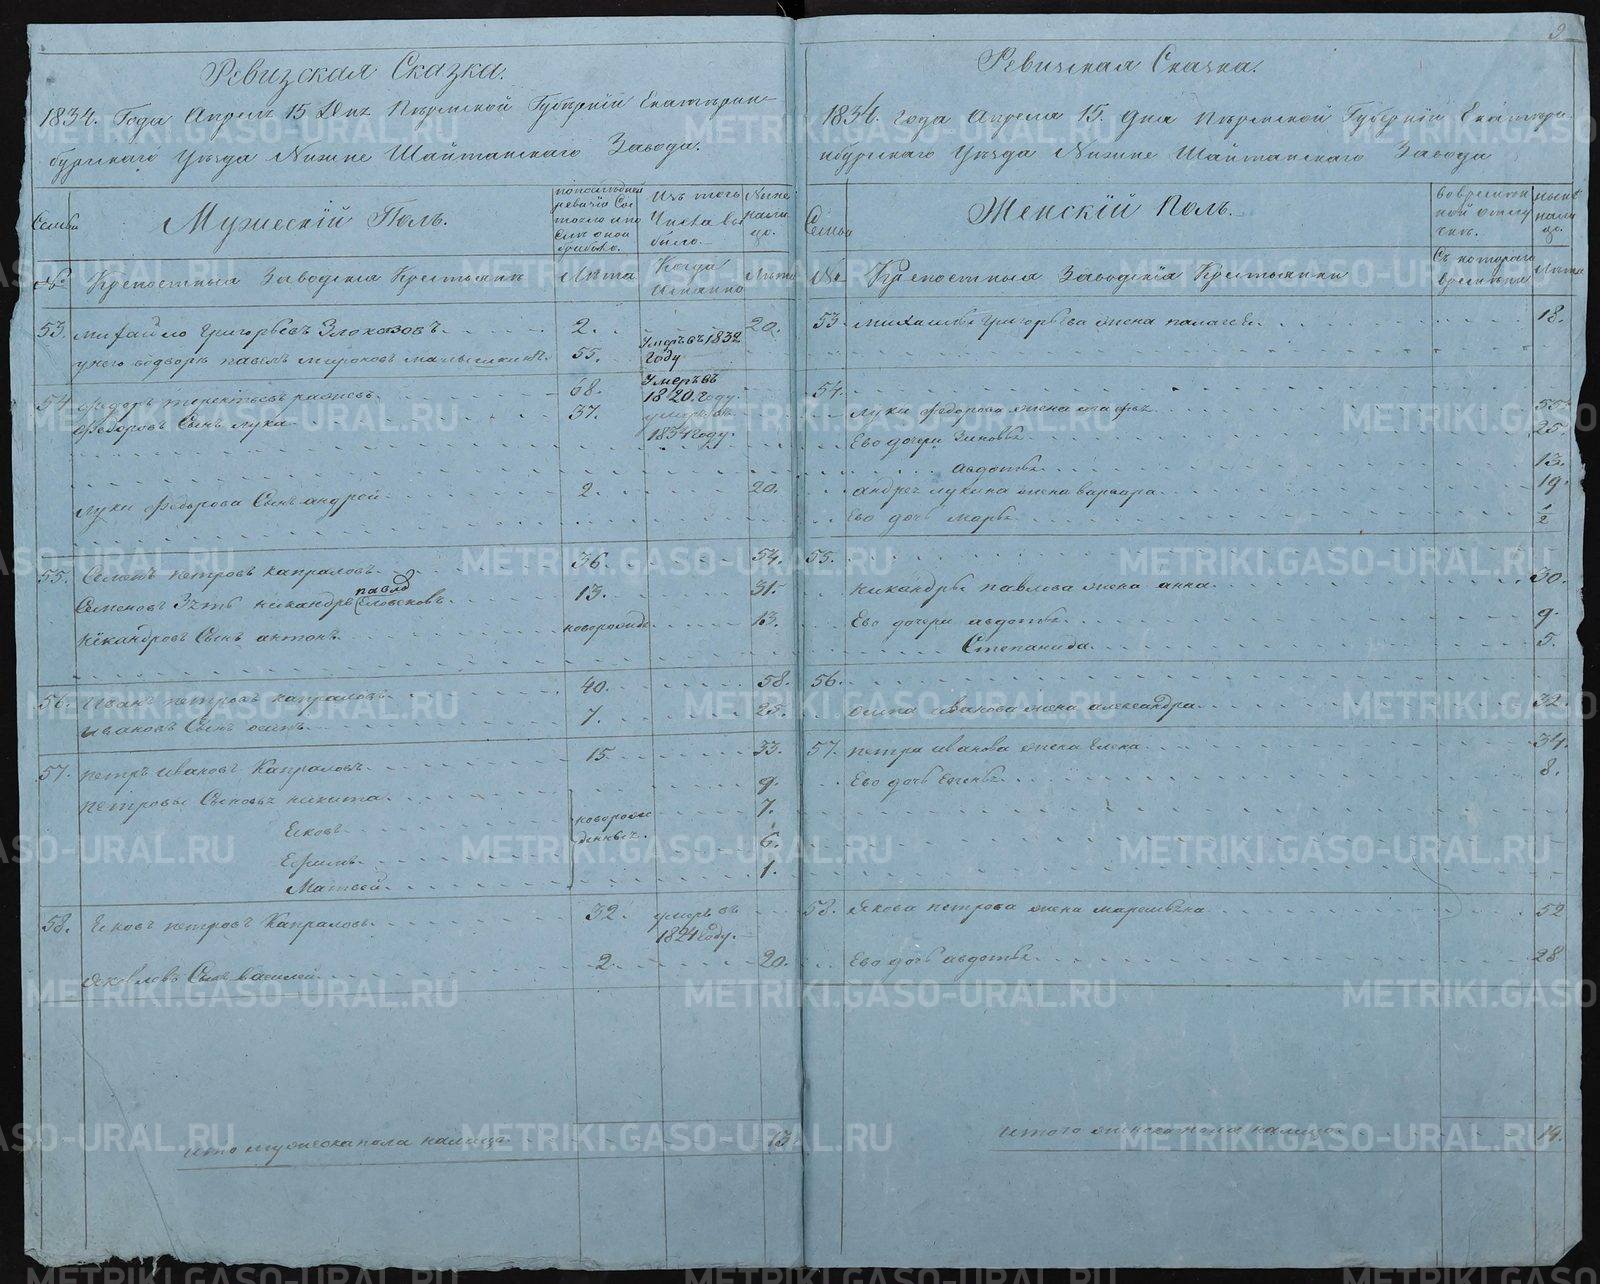 Ревизская Сказка.
1834. Года Апреля 15 Дня Пермской Губернїи Екатерин-
бургскаго Уезда Нижне Шайтанскаго Завода.
Семьи
Мужескїй Полъ.
по последней ревизїи Состояло и после оной прибыло.
Изъ того Числа выбыло.
Ныне налицо.
№
Крепостныя Заводскїя Крестьяне
Лета
Когда Имянно
Лета
53. Михайло Григорьевъ Злоказовъ 2. 20.
у него водворе павелъ мироновъ 55. Умеръ въ 1832 Году
54. Федоръ терентьевъ 68. Умеръ въ 1820 Году
Федоровъ Сынъ лука 37. умеръ въ 1834 Году.
луки Федорова Сынъ андрей 2. 20.
55. Семенъ петровъ капраловъ 36. 54.
павло
Семеновъ Зять никандръ 13. 31.
никандровъ Сынъ антонъ новорожде 13.
56. Иванъ петровъ капраловъ 40. 58.
ивановъ Сынъ осипъ 7. 25.
57. петръ ивановъ Капраловъ 15 33.
петровы Сыновья никита 9.
новорожденныя
Яковъ 7.
Ефимъ 6.
Матвей 1.
58. Яковъ петровъ Капраловъ 32. умеръ въ 1824 Году.
Яковлевъ Сынъ василей 2. 20.
итого мужеска пола налицо 13.
9
Ревизская Сказка.
1834. года Апреля 15. дня Пермской Губернїи Екатери
нбургскаго Уезда Нижне Шайтанскаго Завода
Семьи
Женскїй Полъ.
во временной отлучке.
ныне налицо.
№
Крепостныя Заводскїя Крестьянки
Съ котораго времени
Лета
53. михаилы Григорьева жена палагея 18.
54.
луки Федорова жена агафья 55
Ево дочери Зиновья 25.
авдотья 13.
андрея лукина жена варвара 19.
Ево дочь марья ½
55.
никандры павлова жена анна 30.
Ево дочери авдотья 9.
Степанида 5.
56.
осипа иванова жена александра 32.
57. петра иванова жена Елена 34.
Ево дочь 8.
58. Якова петрова жена маремьяна 52
Ево дочь авдотья 28
итого женскаго пола налицо 14.
METRIKI.GASO-URAL.RU